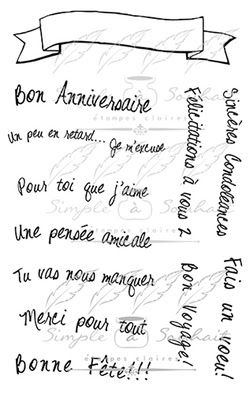 Bon Anniversaire
Un peu en retard... Je m'excuse
Pour toi que j'aime
Une pensée amicale
Tu vas nous manquer
Merci pour tout
Bonne Fête!!!
Félicitations à vous 2
Bon Voyage!
Sincères Condoléances
Fais un voeu!
Simple à Souhait
étampes claires